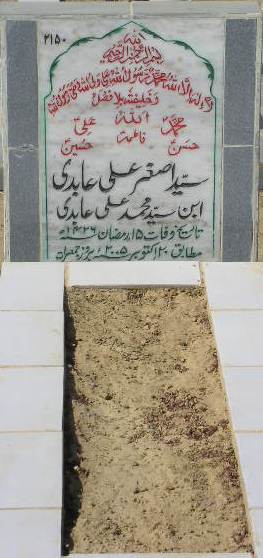 ۲۱۵۰
بسم الله الرحمن الرحیم
لا اله الا الله محمد رسول الله علی ولی الله
وخلیفتہ بلا فصل
محمدؐ اللہ علیؑ
حسنؑ فاطمہؑ حسینؑ
سیّد اصغر علی عابدی
ابن سید محمد علی عابدی
تاریخ وفات ۱۵ رمضان ۱۴۲۶ھ
مطابق ۲۰ اکتوبر ۲۰۰۵ء بروز جمعرات